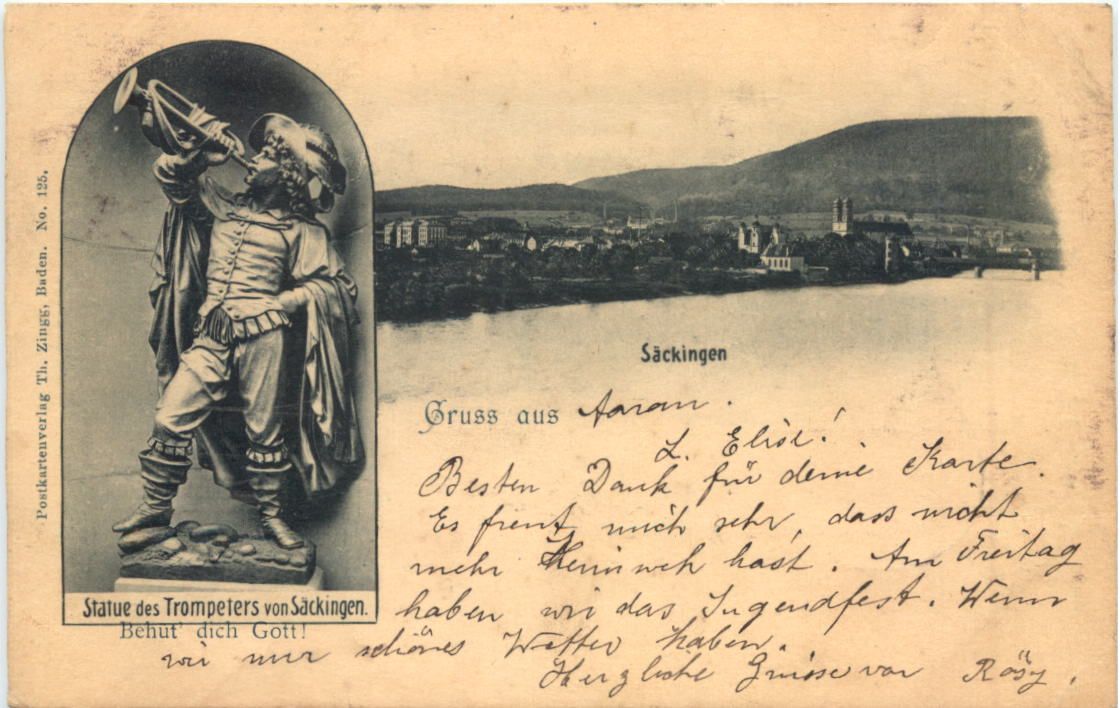 Postkartenverlag Th. Zingg, Baden. No. 125.
Säckingen
Gruss aus Aarau.
L. Elise!
Besten Dank für deine Karte.
Es freut mich sehr, dass nicht
mehr Heimweh hast. Am Freitag
haben wir das Jugendfest. Wenn
Statue des Trompeters von Säckingen.
Behüt' dich Gott!
wir nur schönes Wetter haben.
Herzliche Grüsse von Rösy.